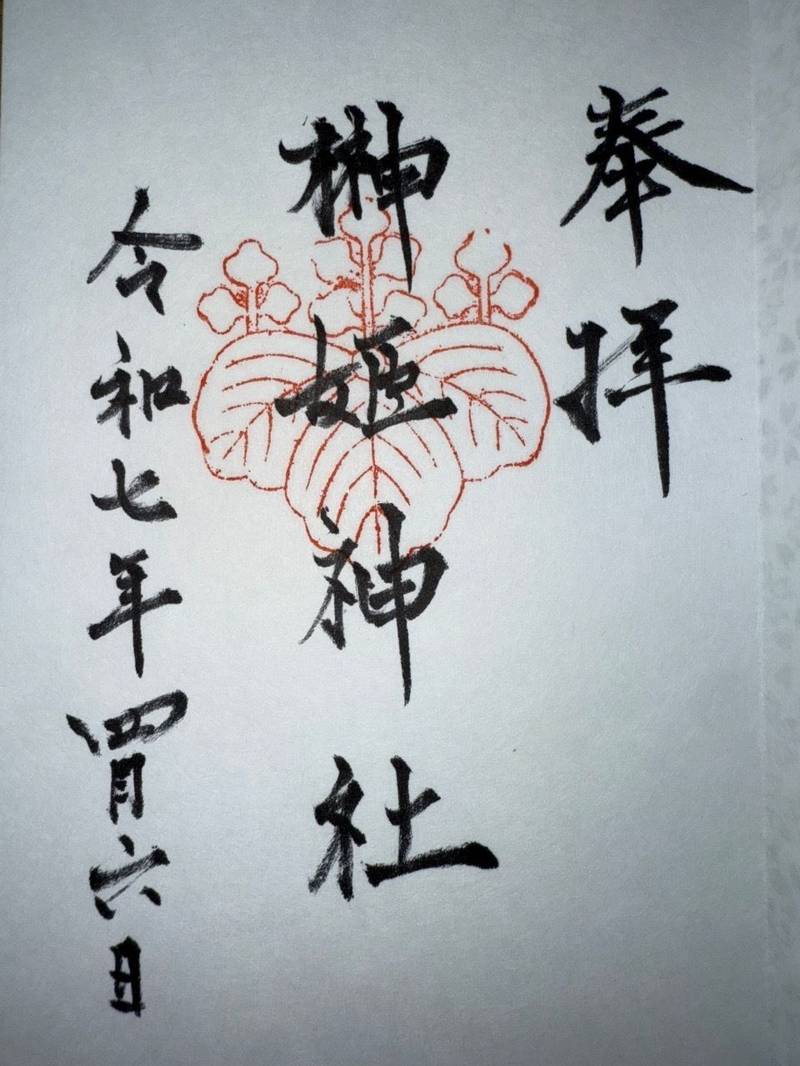 奉拝
榊姫神社
令和七年四月六日